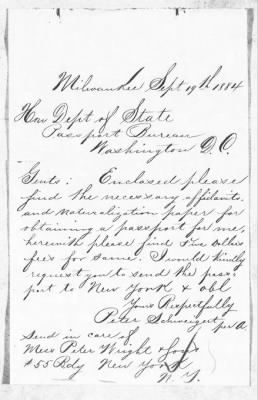 Milwaukee Sept 19th 1884
Hon Dept of State
Passport Bureau
Washington D.C.
Gents: Enclosed please
find the necessary affidavits
and Naturalization paper for
obtaining a passport for me,
herewith please find Five Dollars
fees for same. I would kindly
request you to send the pass-
port to New York & obl
Yours Respectfully
Peter Schweizert
per A
Send in care of
Mess Peter Wright & Sons
#55 Bdy New York
N. Y.